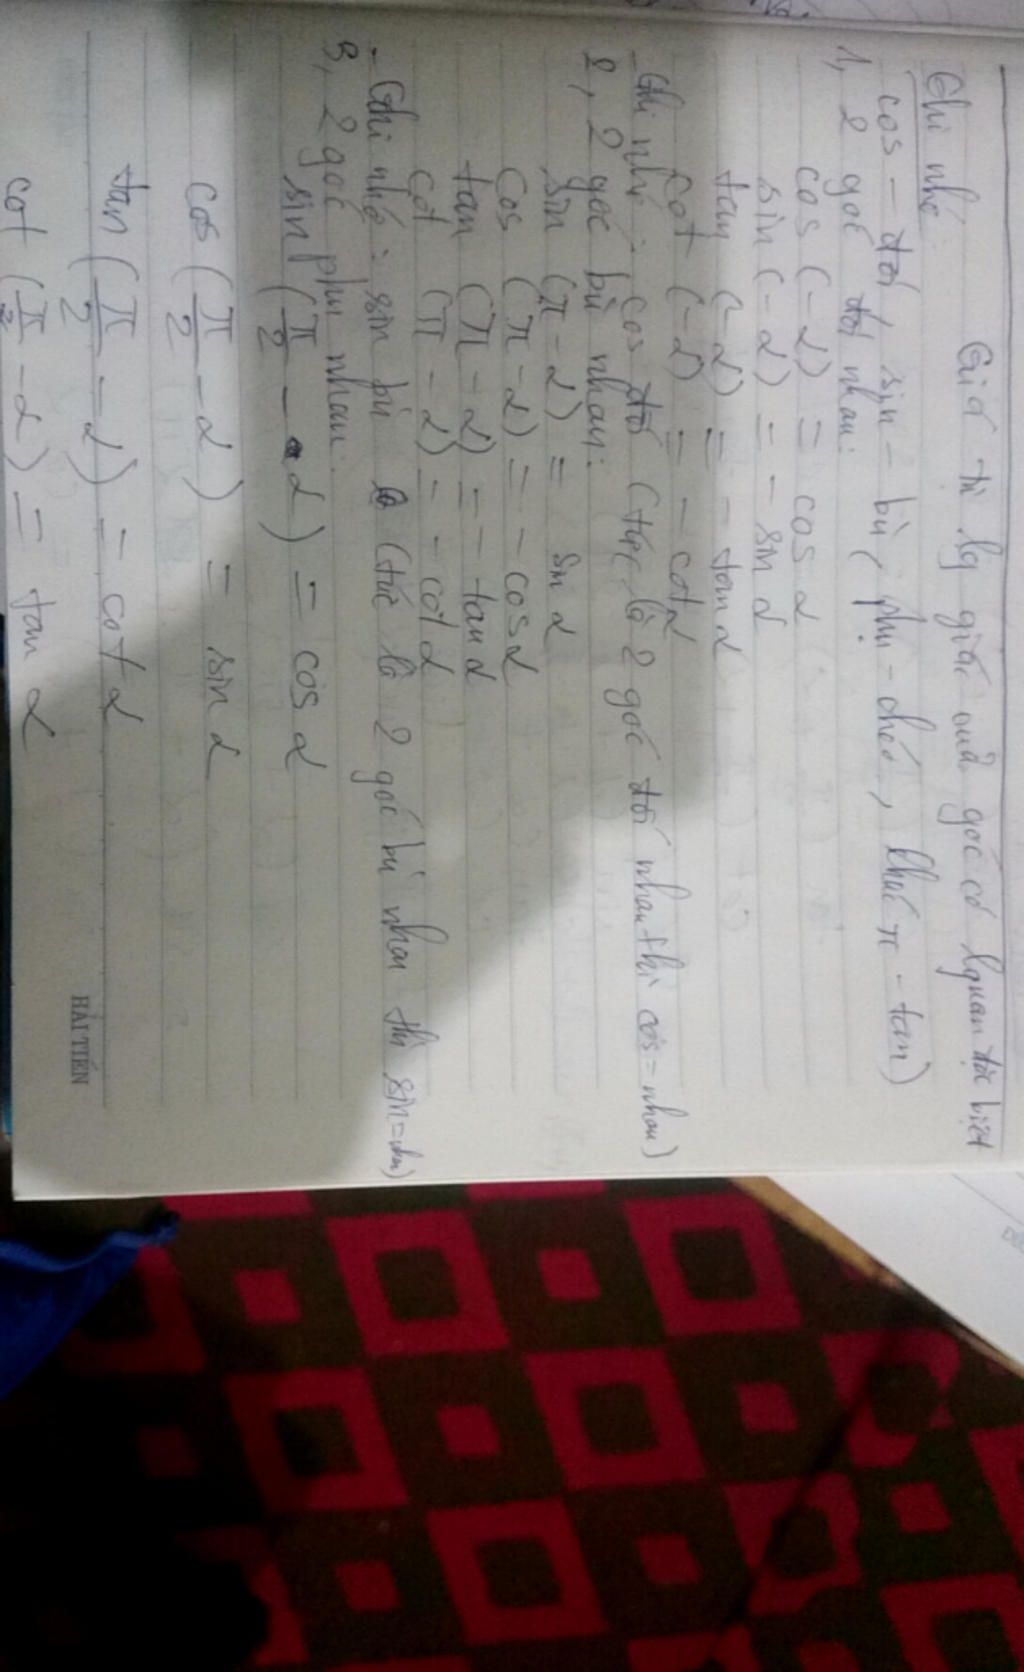 Giá trị lg giác của góc có lquan đặc biệt
Ghi nhớ:
cos - đối, sin - bù, phụ - chéo, khác π - tan)
1, 2 góc đối nhau:
cos (-α) = cos α
sin (-α) = - sin α
tan (-α) = - tan α
cot (-α) = - cot α
- Ghi nhớ: cos đối (tức là 2 góc đối nhau thì cos = nhau)
2, 2 góc bù nhau:
sin (π - α) = sin α
cos (π - α) = - cos α
tan (π - α) = - tan α
cot (π - α) = - cot α
- Ghi nhớ: sin bù (tức là 2 góc bù nhau thì sin = nhau)
3, 2 góc phụ nhau:
sin (π/2 - α) = cos α
cos (π/2 - α) = sin α
tan (π/2 - α) = cot α
cot (π/2 - α) = tan α
HẢI TIẾN